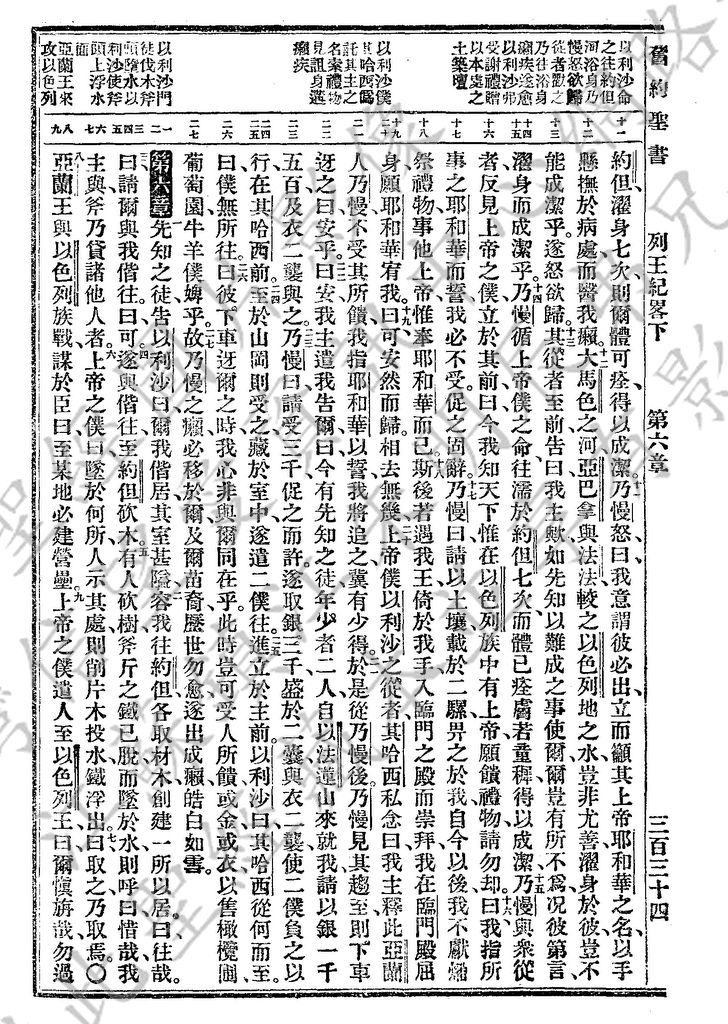 舊約聖書 列王紀畧下 第六章 三百三十四
以利沙命
之往約但
河浴身乃
慢怒欲歸
從者勸之
乃往浴身
癩疾遂愈
以利沙弗
受謝禮贈
以本處之
土築壇
以利沙僕
其哈西僞
託其主之
名索禮物
見詛身遘
癩疾
以利沙門
徒伐木斧
頭墮水以
利沙使斧
頭上浮水
亞蘭王來
攻以色列
十一 十二 十三 十四 十五 十六 十七 十八 十九 二十 二一 二二 二三 二四 二五 二六 二七 一 二 三 四 五 六 七 八 九
約但濯身七次則爾體可痊得以成潔十一乃慢怒曰我意謂彼必出立而籲其上帝耶和華之名以手
懸撫於病處而醫我癩十二大馬色之河亞巴拿與法法較之以色列地之水豈非尤善濯身於彼豈不
能成潔乎遂怒欲歸十三其從者至前告曰我主歟如先知以難成之事使爾爾豈有所不爲況彼第言
濯身而成潔乎十四乃慢循上帝僕之命往濡於約但七次而體已痊膚若童穉得以成潔十五乃慢與衆從
者反見上帝之僕立於其前曰今我知天下惟在以色列族中有上帝願饋禮物請勿却十六曰我指所
事之耶和華而誓我必不受促之固辭十七乃慢曰請以土壤載於二騾畀之於我自今以後我不獻燔
祭禮物事他上帝惟奉耶和華而已十八斯後若遇我王倚於我手入臨門之殿而崇拜我在臨門殿屈
身願耶和華宥我十九曰可安然而歸相去無幾二十上帝僕以利沙之從者其哈西私念曰我主釋此亞蘭
人乃慢不受其所饋我指耶和華以誓我將追之冀有少得二一於是從乃慢後乃慢見其趨至則下車
迓之曰安乎二二曰安我主遣我告爾曰今有先知之徒年少者二人自以法蓮山來就我請以銀一千
五百及衣二襲與之二三乃慢曰請受三千促之而許遂取銀三千盛於二囊與衣二襲使二僕負之以
行在其哈西前二四至於山岡則受之藏於室中遂遣二僕往二五進立於主前以利沙曰其哈西從何而至
曰僕無所往二六曰彼下車迓爾之時我心非與爾同在乎此時豈可受人所饋或金或衣以售橄欖園
葡萄園牛羊僕婢乎二七故乃慢之癩必移於爾及爾苗裔歷世勿愈遂出成癩皓白如雪
第六章 先知之徒告以利沙曰爾我偕居其室甚隘二容我往約但各取材木創建一所以居曰往哉三
曰請爾與我偕往曰可四遂與偕往至約但砍木五有人砍樹斧斤之鐵已脫而墜於水則呼曰惜哉我
主與斧乃貸諸他人者六上帝之僕曰墜於何所人示其處則削片木投水鐵浮出七曰取之乃取焉〇
八亞蘭王與以色列族戰謀於臣曰至某地必建營壘九上帝之僕遣人至以色列王曰爾愼旃哉勿過